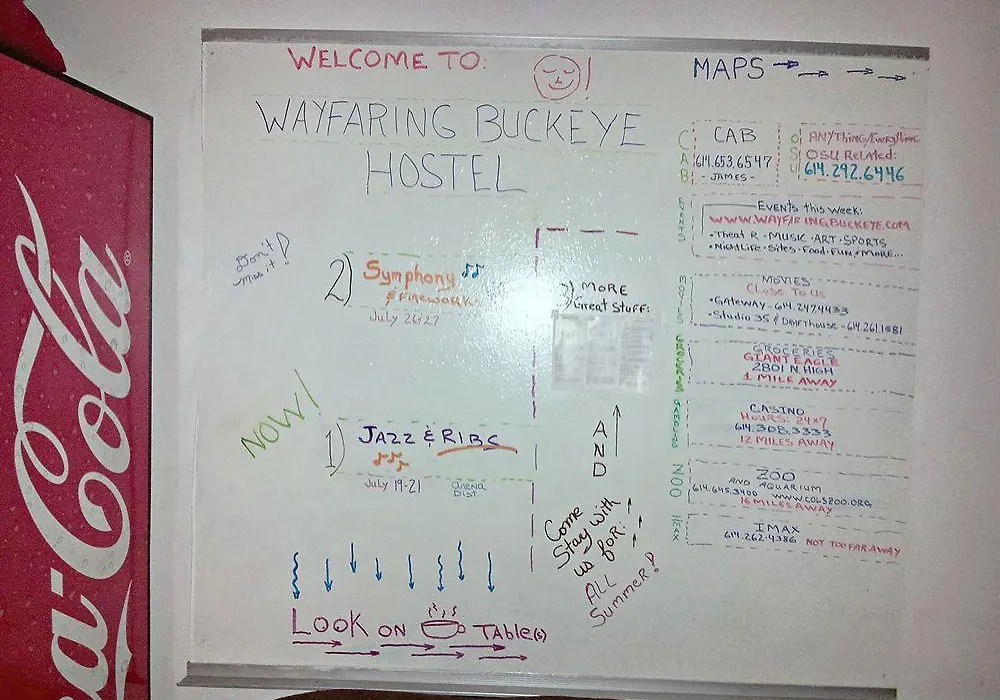 WELCOME TO:
WAYFARING BUCKEYE
HOSTEL
MAPS
CAB
CAB
614.653.6547
- JAMES -
OSU
ANYTHING/Everything
OSU Related:
614.292.6446
Events this week:
WWW.WAYFARINGBUCKEYE.COM
• TheatR • MUSIC • ART • SPORTS
• NightLife • Sites • Food • FUN & MORE...
MOVIES
MOVIES
Close To Us
• Gateway - 614.247.4433
• Studio 35 & Drafthouse - 614.261.1581
GROCERIES
GIANT EAGLE
2801 N. HIGH
1 MILE AWAY
CASINO
HOURS: 24x7
614.308.3333
12 MILES AWAY
ZOO
ZOO
AND AQUARIUM
614.645.3400 WWW.COLSZOO.ORG
16 MILES AWAY
IMAX
614.262.4386 NOT TOO FAR AWAY
Don't
miss it!
2) Symphony
& Fireworks
July 26-27
3) MORE
Great Stuff:
NOW!
1) JAZZ & RIBS
July 19-21
Arena
Dist
AND
Come
Stay with
us for:
ALL
Summer!
LOOK ON TABLE(S)
Coca-Cola
®